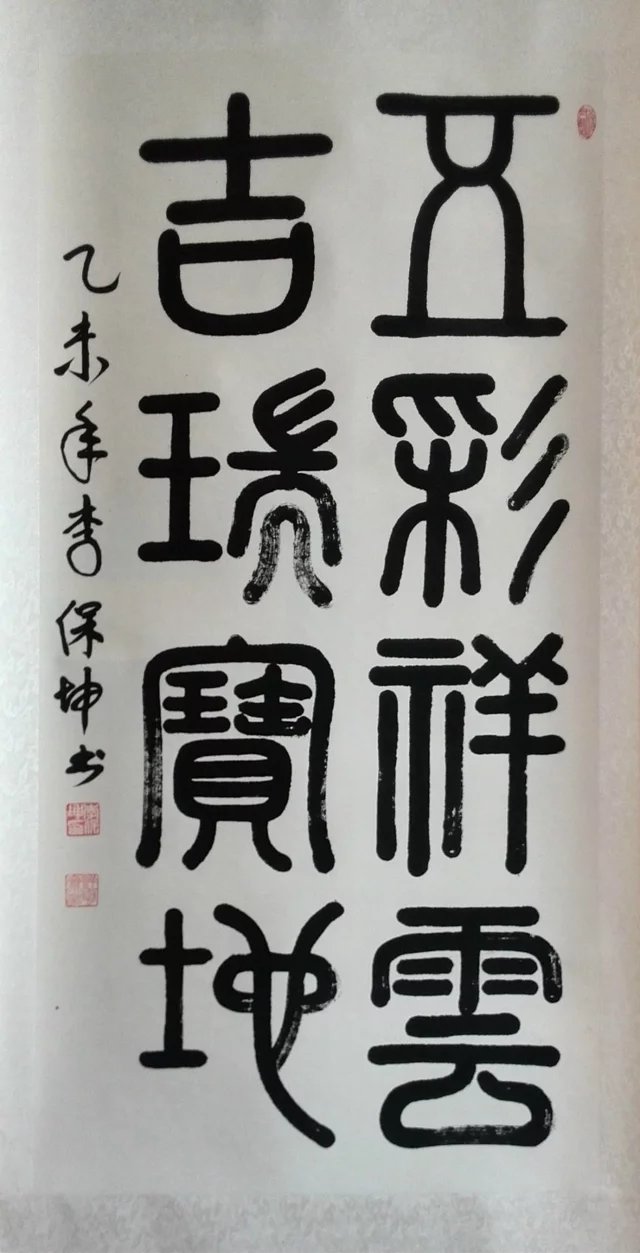 五彩祥雲
吉瑞寶地
乙未年李保坤书